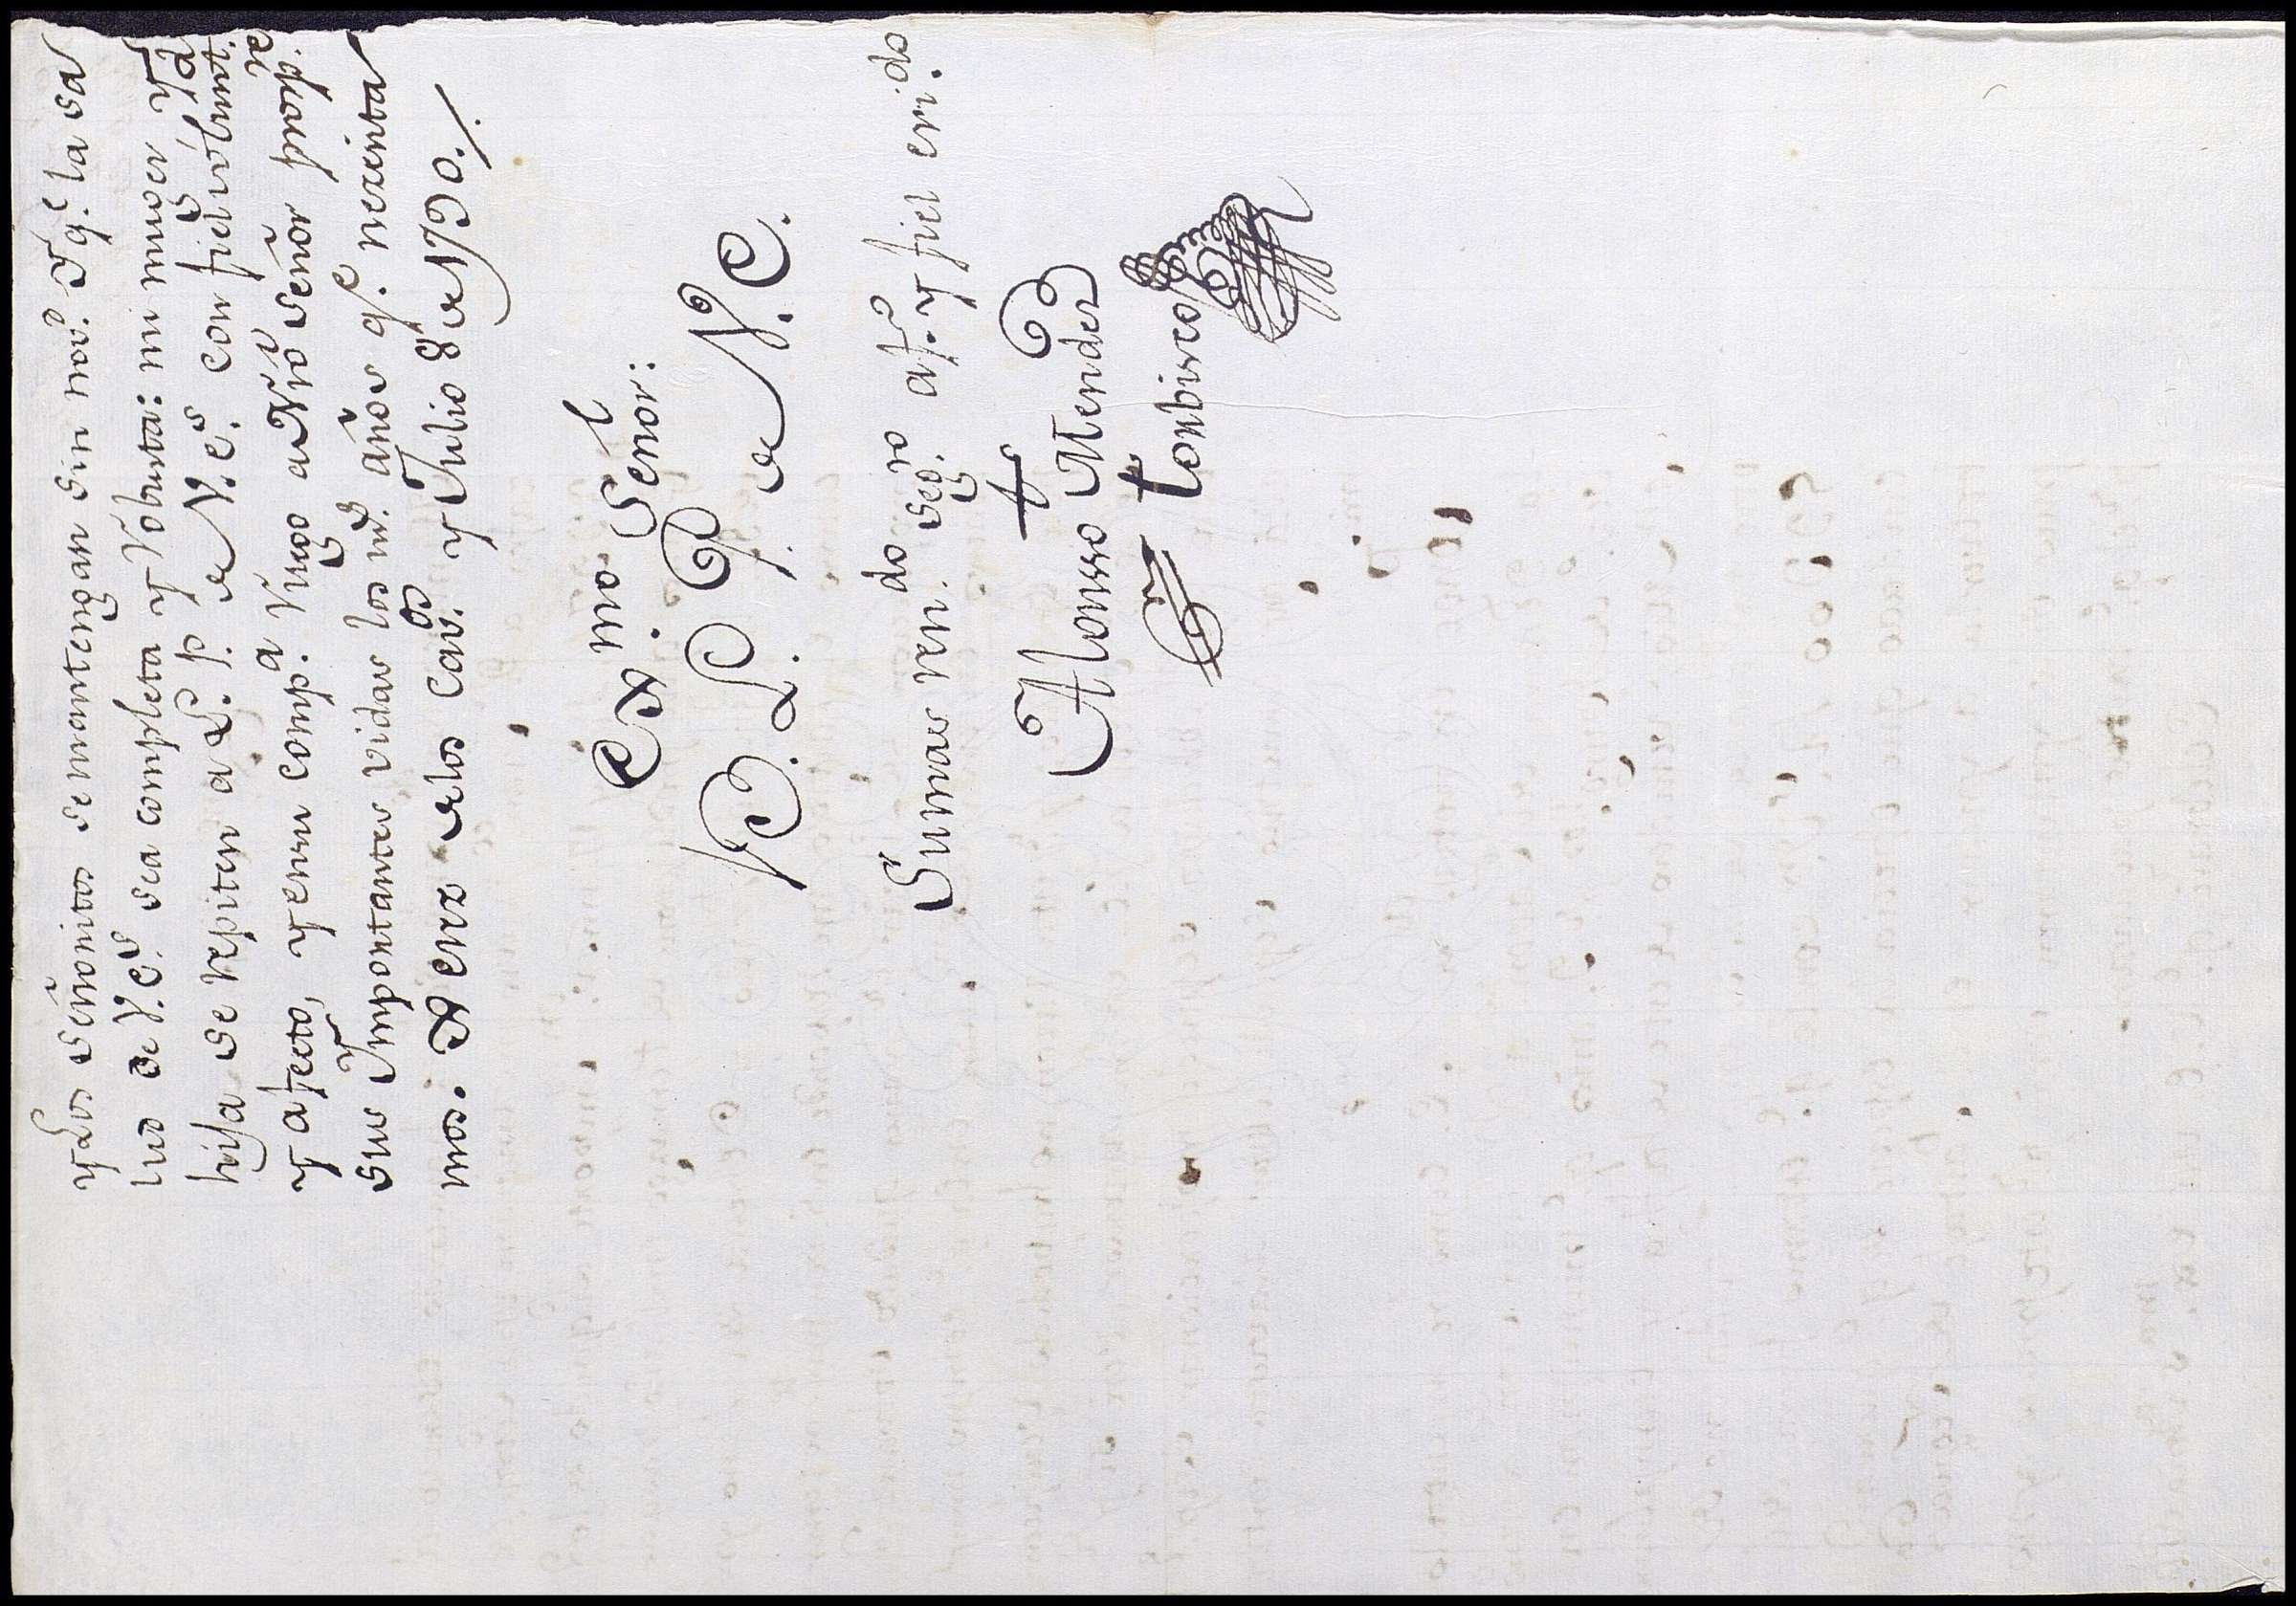 y Los señoritos se mantengan sin nov.d Y q.e la sa
lud de V.E.s sea completa y Robusta: mi muger Y a
hija se repiten a L. p. de V.e.s con fiel volunt.
y afecto, y en su comp.a Ruego a Nrō señor prosp.re
sus Importantes vidas los m.s años q.e nezesita
mos. Xerez de los Cav.os y Julio 8 de 1730./
Ex.mo Señor:
B. L. P. de V. E.
Su mas ren.do seg.ro af.to y fiel cri.do
Alonsso Mendez